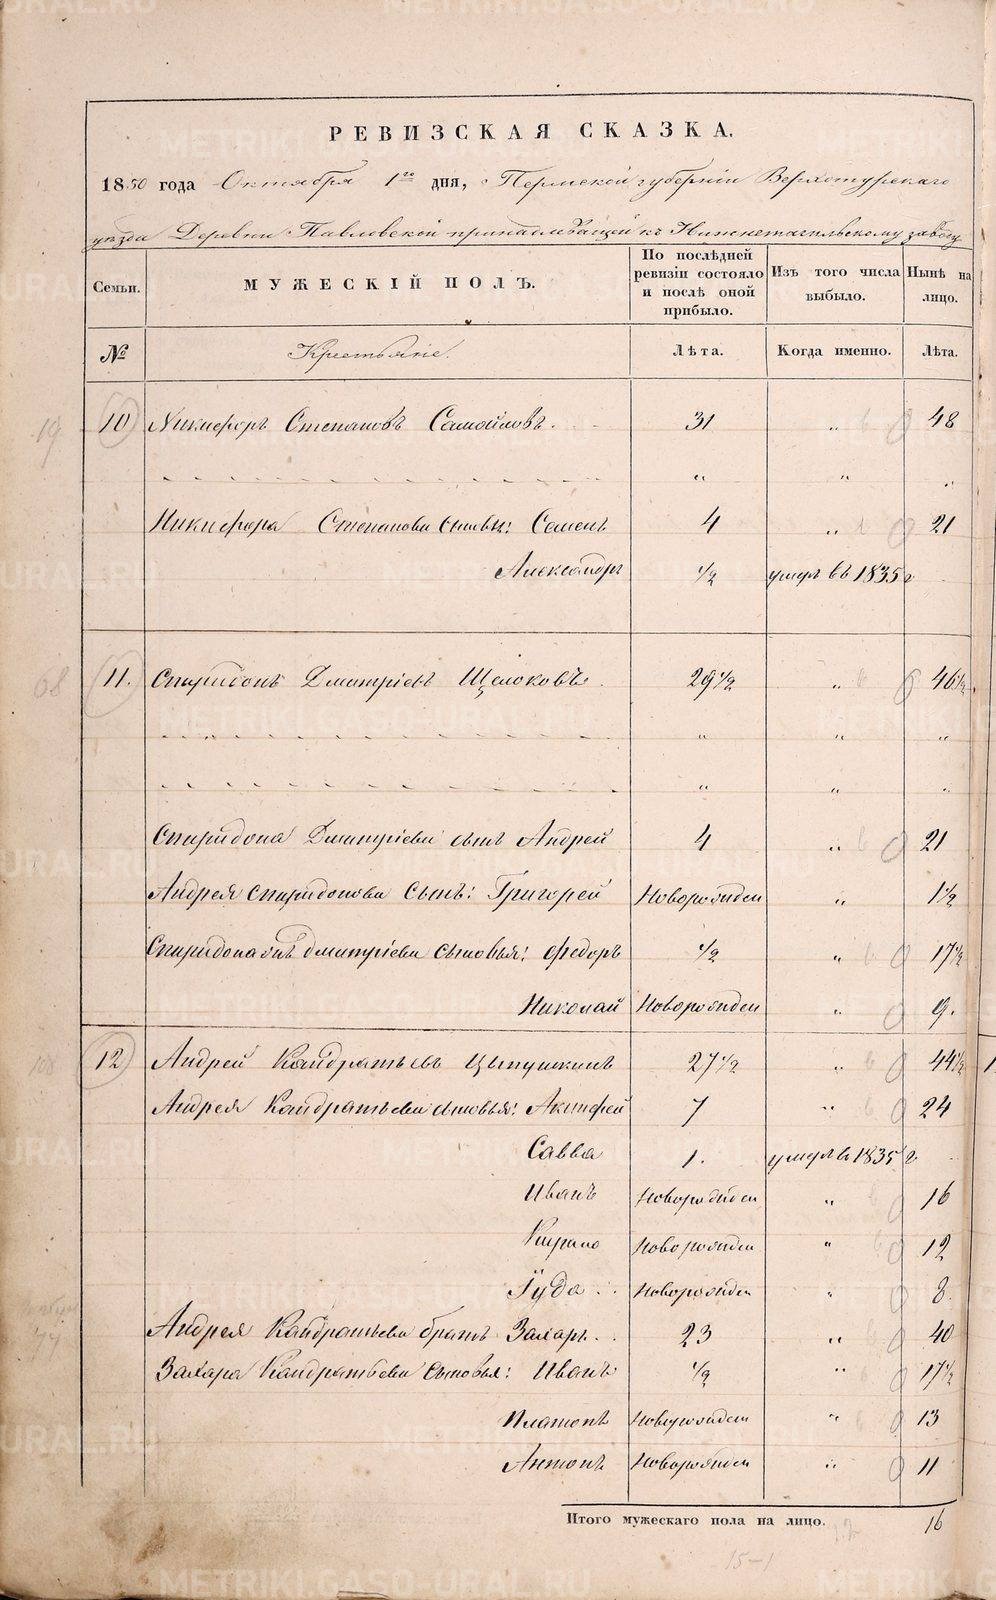 РЕВИЗСКАЯ СКАЗКА.
1850 года Октября 1го дня, Пермской губерніи Верхотурскаго
уѣзда Деревни Павловской принадлежащей къ Нижнетагильскому заводу
Семьи. МУЖЕСКІЙ ПОЛЪ. По послѣдней ревизіи состояло и послѣ оной прибыло. Изъ того числа выбыло. Нынѣ на лицо.
№ Крестьяне. Лѣта. Когда именно. Лѣта.
19 10 Никифоръ Степановъ Самойловъ. 31 „ 48
„ „ „
Никифора Степанова сыновья: Семенъ 4 „ 21
Александръ ½ умеръ въ 1835 г
68 11. Спиридонъ Дмитріевъ Щелоковъ 29½ „ 46½
„ „ „
„ „ „
Спиридона Дмитріева сынъ Андрей 4 „ 21
Андрея Спиридонова Сынъ: Григорей Новорожден „ 1½
Спиридона Дмитріева сыновья: Федоръ ½ „ 17½
Николай Новорожден „ 9.
108 12 Андрей Кандратьевъ Цыпушкинъ 27½ „ 44½
Андрея Кандратьева сыновья: Акинфей 7 „ 24
Савва 1. умеръ въ 1835 г
Иванъ Новорожден „ 16
Кирило Новорожден „ 12
Іуда Новорожден „ 8
Андрея Кандратьева братъ Захаръ 23 „ 40
Захара Кандратьева Сыновья: Иванъ ½ „ 17½
Платонъ Новорожден „ 13
Антонъ Новорожден „ 11
Итого мужескаго пола на лицо. 16
15-1
METRIKI.GASO-URAL.RU